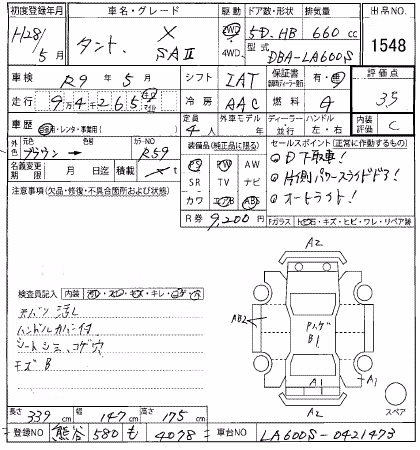 初度登録年月 車名・グレード 駆動 ドア数・形状 排気量 出品NO.
H28/5月 タント X SAⅡ 2WD 4WD 5D.HB 660cc 1548
型式 DBA-LA600S
車検 R9年5月 シフト IAT 保証書 有・無 評価点
走行 9万4千265 冷房 AAC 燃料 G 35
車歴 自家用・レンタ・事業用( ) 定員 4人 ディーラー 並行 ハンドル 左・右 内装評価 C
外色 元色 ブラウン 色替 カラーNO R59 装備品(純正品に限る) セールスポイント(正常に作動するもの)
名義変更期限 月 日迄 積載 PS PW AW ◎下取車!
注意事項(欠品・修復・不具合箇所および状態) SR TV ナビ ◎片側パワースライドドア!
カワ エアB ABS ◎オートライト!
R券 9,200円
Fガラス トビ石・キズ・ヒビ・ワレ・リペア跡
A2
検査員記入 内装
AB2
ハンドルカバー付
B1
シートシミ、コゲ穴
キズB
A1 A1
A2 スペア
長さ 339cm 幅 147cm 高さ 175cm
登録NO 熊谷 580 も 4078 車台NO LA600S-0421473